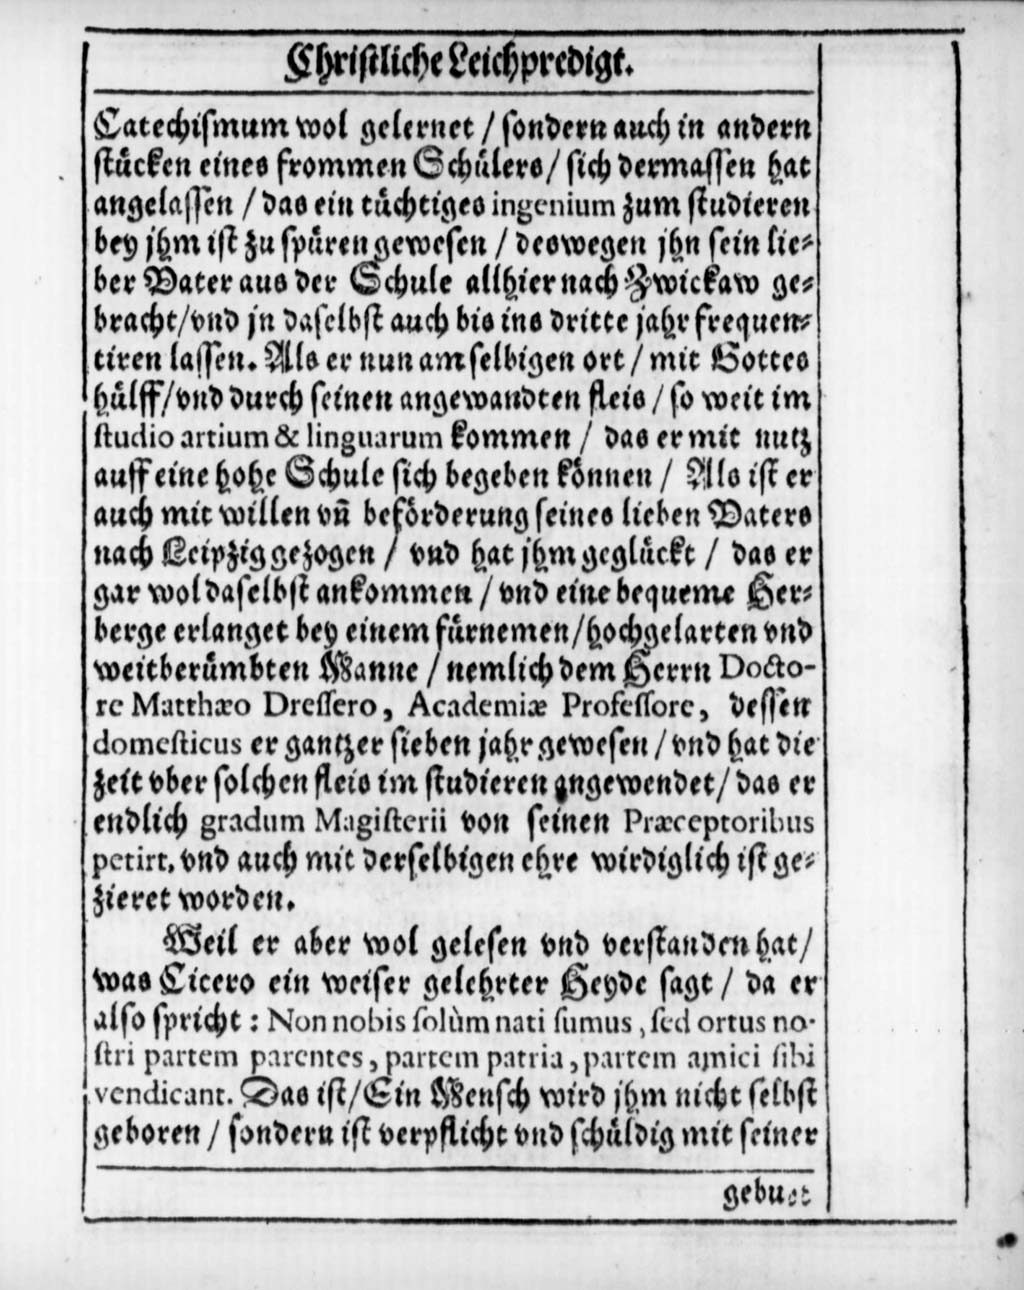 Christliche Leichpredigt.
Catechismum wol gelernet / sondern auch in andern
stücken eines frommen Schülers / sich dermassen hat
angelassen / das ein tüchtiges ingenium zum studieren
bey jhm ist zu spüren gewesen / deswegen jhn sein lie-
ber Vater aus der Schule allhier nach Zwickaw ge-
bracht / vnd jn daselbst auch bis ins dritte jahr frequen-
tiren lassen. Als er nun am selbigen ort / mit Gottes
hülff / vnd durch seinen angewandten fleis / so weit im
studio artium & linguarum kommen / das er mit nutz
auff eine hohe Schule sich begeben können / Als ist er
auch mit willen vñ beförderung seines lieben Vaters
nach Leipzig gezogen / vnd hat jhm geglückt / das er
gar wol daselbst ankommen / vnd eine bequeme Her-
berge erlanget bey einem fürnemen / hochgelarten vnd
weitberümbten Manne / nemlich dem Herrn Docto-
re Matthæo Dressero, Academiæ Professore, dessen
domesticus er gantzer sieben jahr gewesen / vnd hat die
zeit vber solchen fleis im studieren angewendet / das er
endlich gradum Magisterii von seinen Præceptoribus
petirt, vnd auch mit derselbigen ehre wirdiglich ist ge-
zieret worden.
Weil er aber wol gelesen vnd verstanden hat /
was Cicero ein weiser gelehrter Heyde sagt / da er
also spricht : Non nobis solùm nati sumus, sed ortus no-
stri partem parentes, partem patria, partem amici sibi
vendicant. Das ist / Ein Mensch wird jhm nicht selbst
geboren / sondern ist verpflicht vnd schüldig mit seiner
geburt